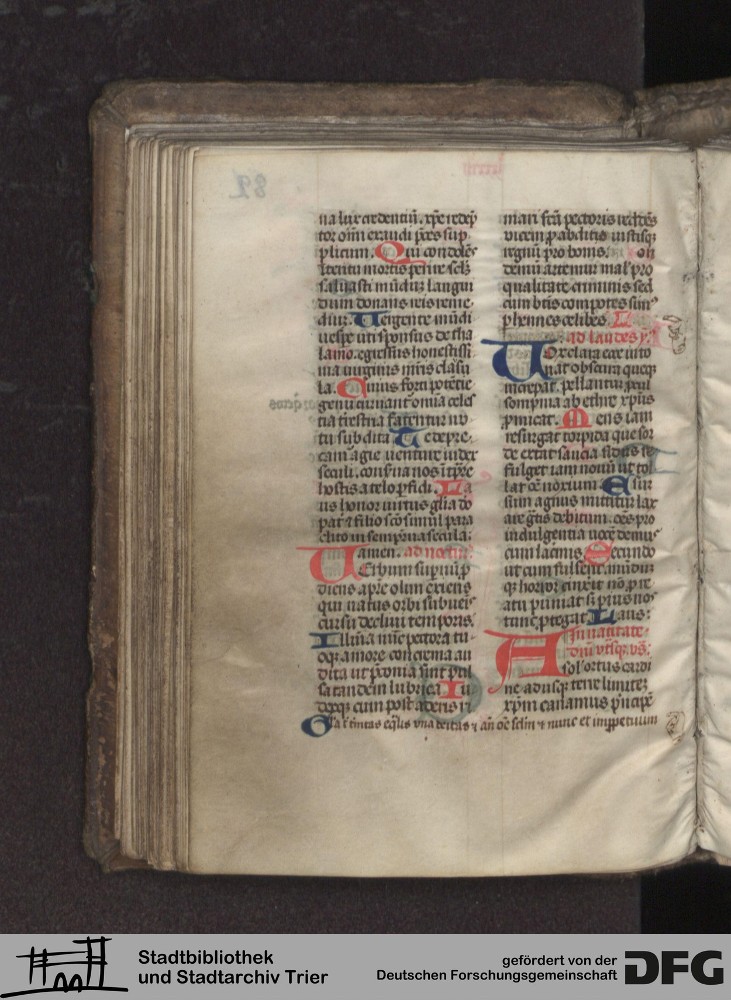 na lux credentiū. xp̄e redēp
tor om̄i exaudi p̄ces sup
plicum. Qui condolēs
saluasti mūdū langui
dum donans reis reme
diū. Uergente mūdi
uespe uti sponsus de tha
lamo. egressus honestissi
ma uirginis mr̄is clasu
la. Cuius forti potētie
genu curuant̄ omia celes
tia trestria fatentur nu
tu subdita. Te depre
cam̄ agie uenture iudex
seculi. conserua nos ī tp̄re
hostis a telo p̄fidi. La
us honor uirtus glīa do
pat̄ & filio sc̄o simul para
clito in sempitna secula:
amen. ad noctur̄.
Uerbum supnū p
diens a pr̄e olim exiens
qui natus orbi subueis
cursu decliui temporis.
Illuīa nūc pectora tu
oq̄ amore concrema au
dita ut p̄conia sint pul
sa tandem lubrica. Iu
dexq̄ cum post aderis ri
mari fc̄a pectoris reddēs
uicem p̄ abditis iustisq̄
regnū pro bonis. Non
demū artemur mal' pro
qualitate criminis sed
cum btīs compotes sim̄
p̄hennes celibes. L
ad laudes y.
Uox clara ecce into
nat obscura queq̄
increpat. pellantur p̄cul
sompnia ab ethre xp̄us
p̄micat. Mens iam
resurgat torpida que sor
de extat saucia sidus re
fulget iam nouū ut tol
lat oē noxium. E sur
sum agnus mittitur lax
are gr̄tis debitum. oēs pro
indulgentia uocē demus
cum lacīmis. Secundo
ut cum fulserit mūdūm
q̄ horror cinxit nō p̄ re
atu puniat s; pius nos
tunc p̄tegat. Laus:
In natiuitate
dn̄i
A sol' ortus cardi
ne adusq̄ terre limitē
xp̄m canamus p̄ncipē
Gl'a
82
Stadtbibliothek
und Stadtarchiv Trier
gefördert von der
Deutschen Forschungsgemeinschaft
DFG